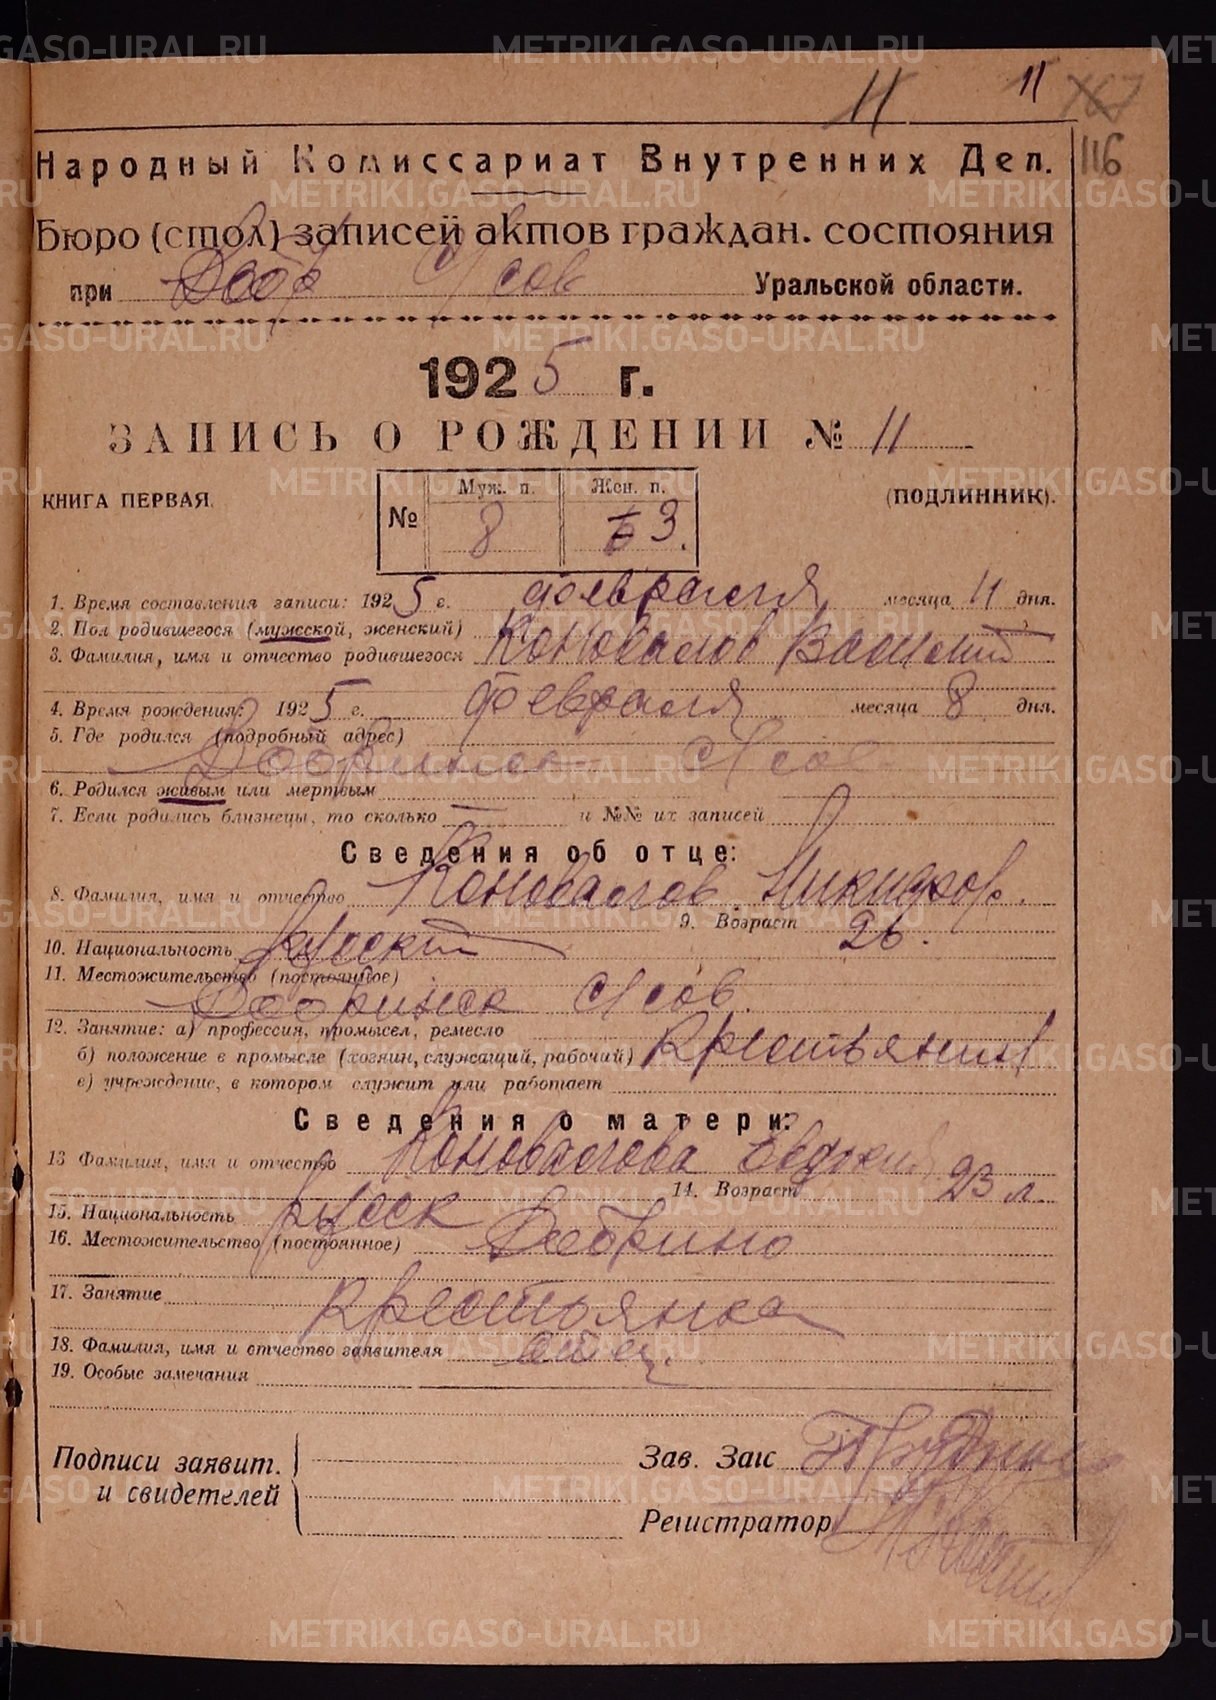 11 11 767
116
Народный Комиссариат Внутренних Дел.
Бюро (стол) записей актов граждан. состояния
при Добр с/сов Уральской области.
1925 г.
ЗАПИСЬ О РОЖДЕНИИ № 11
КНИГА ПЕРВАЯ. (ПОДЛИННИК).
Муж. п. Жен. п.
№ 8 3.
1. Время составления записи: 1925 г. февраля месяца 11 дня.
2. Пол родившегося (мужской, женский)
3. Фамилия, имя и отчество родившегося Коновалов Василий
4. Время рождения: 1925 г. февраля месяца 8 дня.
5. Где родился (подробный адрес)
Добринск с/сов
6. Родился живым или мертвым
7. Если родились близнецы, то сколько — и №№ их записей
Сведения об отце:
8. Фамилия, имя и отчество Коновалов Никифор.
9. Возраст 26.
10. Национальность Русский
11. Местожительство (постоянное)
Добринск с/сов.
12. Занятие: а) профессия, промысел, ремесло
б) положение в промысле (хозяин, служащий, рабочий) Крестьянин
в) учреждение, в котором служит или работает
Сведения о матери:
13 Фамилия, имя и отчество Коновалова Евдокия
14. Возраст 23 л
15. Национальность Русск
16. Местожительство (постоянное) Добрино
17. Занятие Крестьянка
18. Фамилия, имя и отчество заявителя отец.
19. Особые замечания
Подписи заявит. Зав. Загс
и свидетелей
Регистратор
METRIKI.GASO-URAL.RU